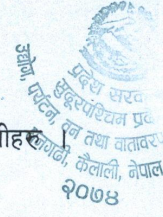 प्रदेश सरकार
सुदूरपश्चिम प्र
उद्योग पर्यटन, वन तथा वातावर
धनगढी, कैलाली, नेपाल
२०७४